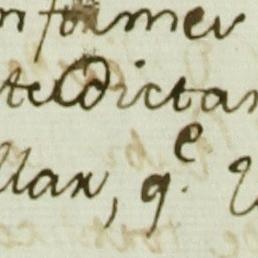 nformer
te Dictan
llan, q.e